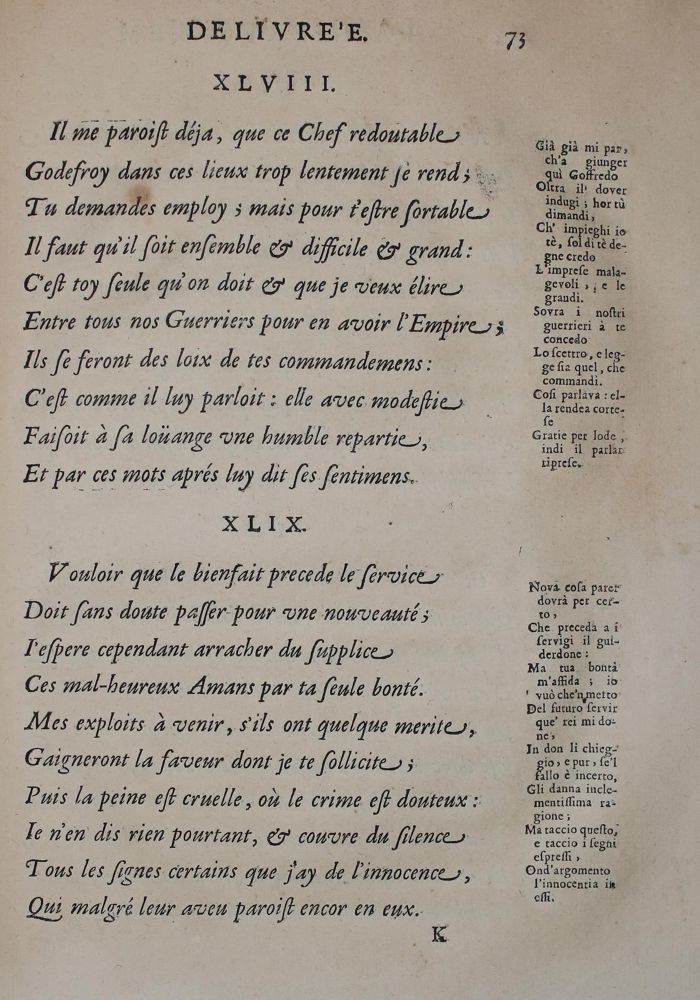 DELIVRE'E. 73
XLVIII.
Il me paroiſt déja, que ce Chef redoutable
Godefroy dans ces lieux trop lentement ſe rend;
Tu demandes employ; mais pour t'eſtre ſortable
Il faut qu'il ſoit enſemble & difficile & grand:
C'eſt toy ſeule qu'on doit & que je veux élire
Entre tous nos Guerriers pour en avoir l'Empire;
Ils ſe feront des loix de tes commandemens:
C'eſt comme il luy parloit: elle avec modeſtie
Faiſoit à ſa loüange vne humble repartie,
Et par ces mots aprés luy dit ſes ſentimens.
Già già mi par,
ch'a giunger
quì Goffredo
Oltra il dover
indugi; hor tù
dimandi,
Ch' impieghi io
tè, ſol di tè de-
gne credo
L'impreſe mala-
gevoli, e le
grandi.
Sovra i noſtri
guerrieri à te
concedo
Lo ſcettro, e leg-
ge ſia quel, che
commandi.
Coſi parlava: el-
la rendea corte-
ſe
Gratie per lode,
indi il parlar
ripreſe.
XLIX.
Vouloir que le bienfait precede le ſervice
Doit ſans doute paſſer pour vne nouveauté;
I'eſpere cependant arracher du ſupplice
Ces mal-heureux Amans par ta ſeule bonté.
Mes exploits à venir, s'ils ont quelque merite,
Gaigneront la faveur dont je te ſollicite;
Puis la peine eſt cruelle, où le crime eſt douteux:
Ie n'en dis rien pourtant, & couvre du ſilence
Tous les ſignes certains que j'ay de l'innocence,
Qui malgré leur aveu paroiſt encor en eux.
Nova coſa parer
dovrà per cer-
to,
Che preceda a i
ſervigi il gui-
derdone:
Ma tua bontà
m'affida; io
vuò che'n metto
Del futuro ſervir
que' rei mi do-
ne,
In don li chieg-
gio, e pur, ſe'l
fallo è incerto,
Gli danna incle-
mentiſſima ra-
gione;
Ma taccio queſto,
e taccio i ſegni
eſpreſſi,
Ond'argomento
l'innocentia in
eſſi.
K